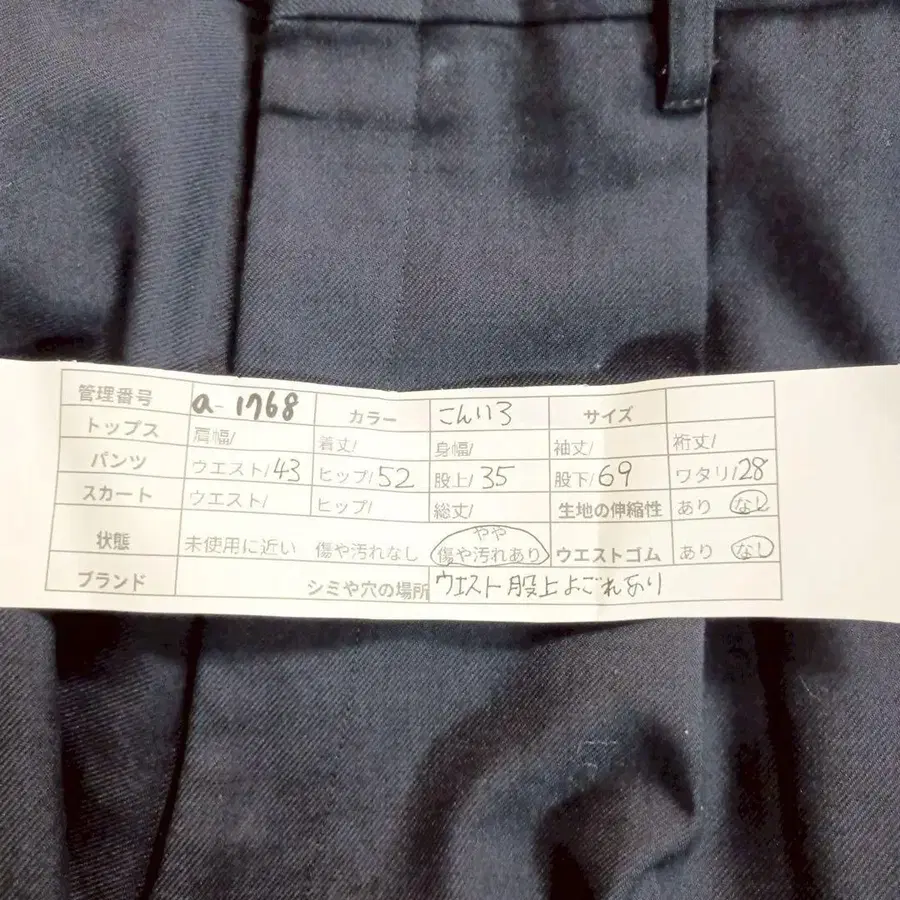 管理番号 a-1768 カラー こんいろ サイズ
トップス 肩幅/ 着丈/ 身幅/ 袖丈/ 裄丈/
パンツ ウエスト/43 ヒップ/52 股上/35 股下/69 ワタリ/28
スカート ウエスト/ ヒップ/ 総丈/ 生地の伸縮性 あり なし
状態 未使用に近い 傷や汚れなし やや傷や汚れあり ウエストゴム あり なし
ブランド シミや穴の場所 ウエスト股上よごれあり